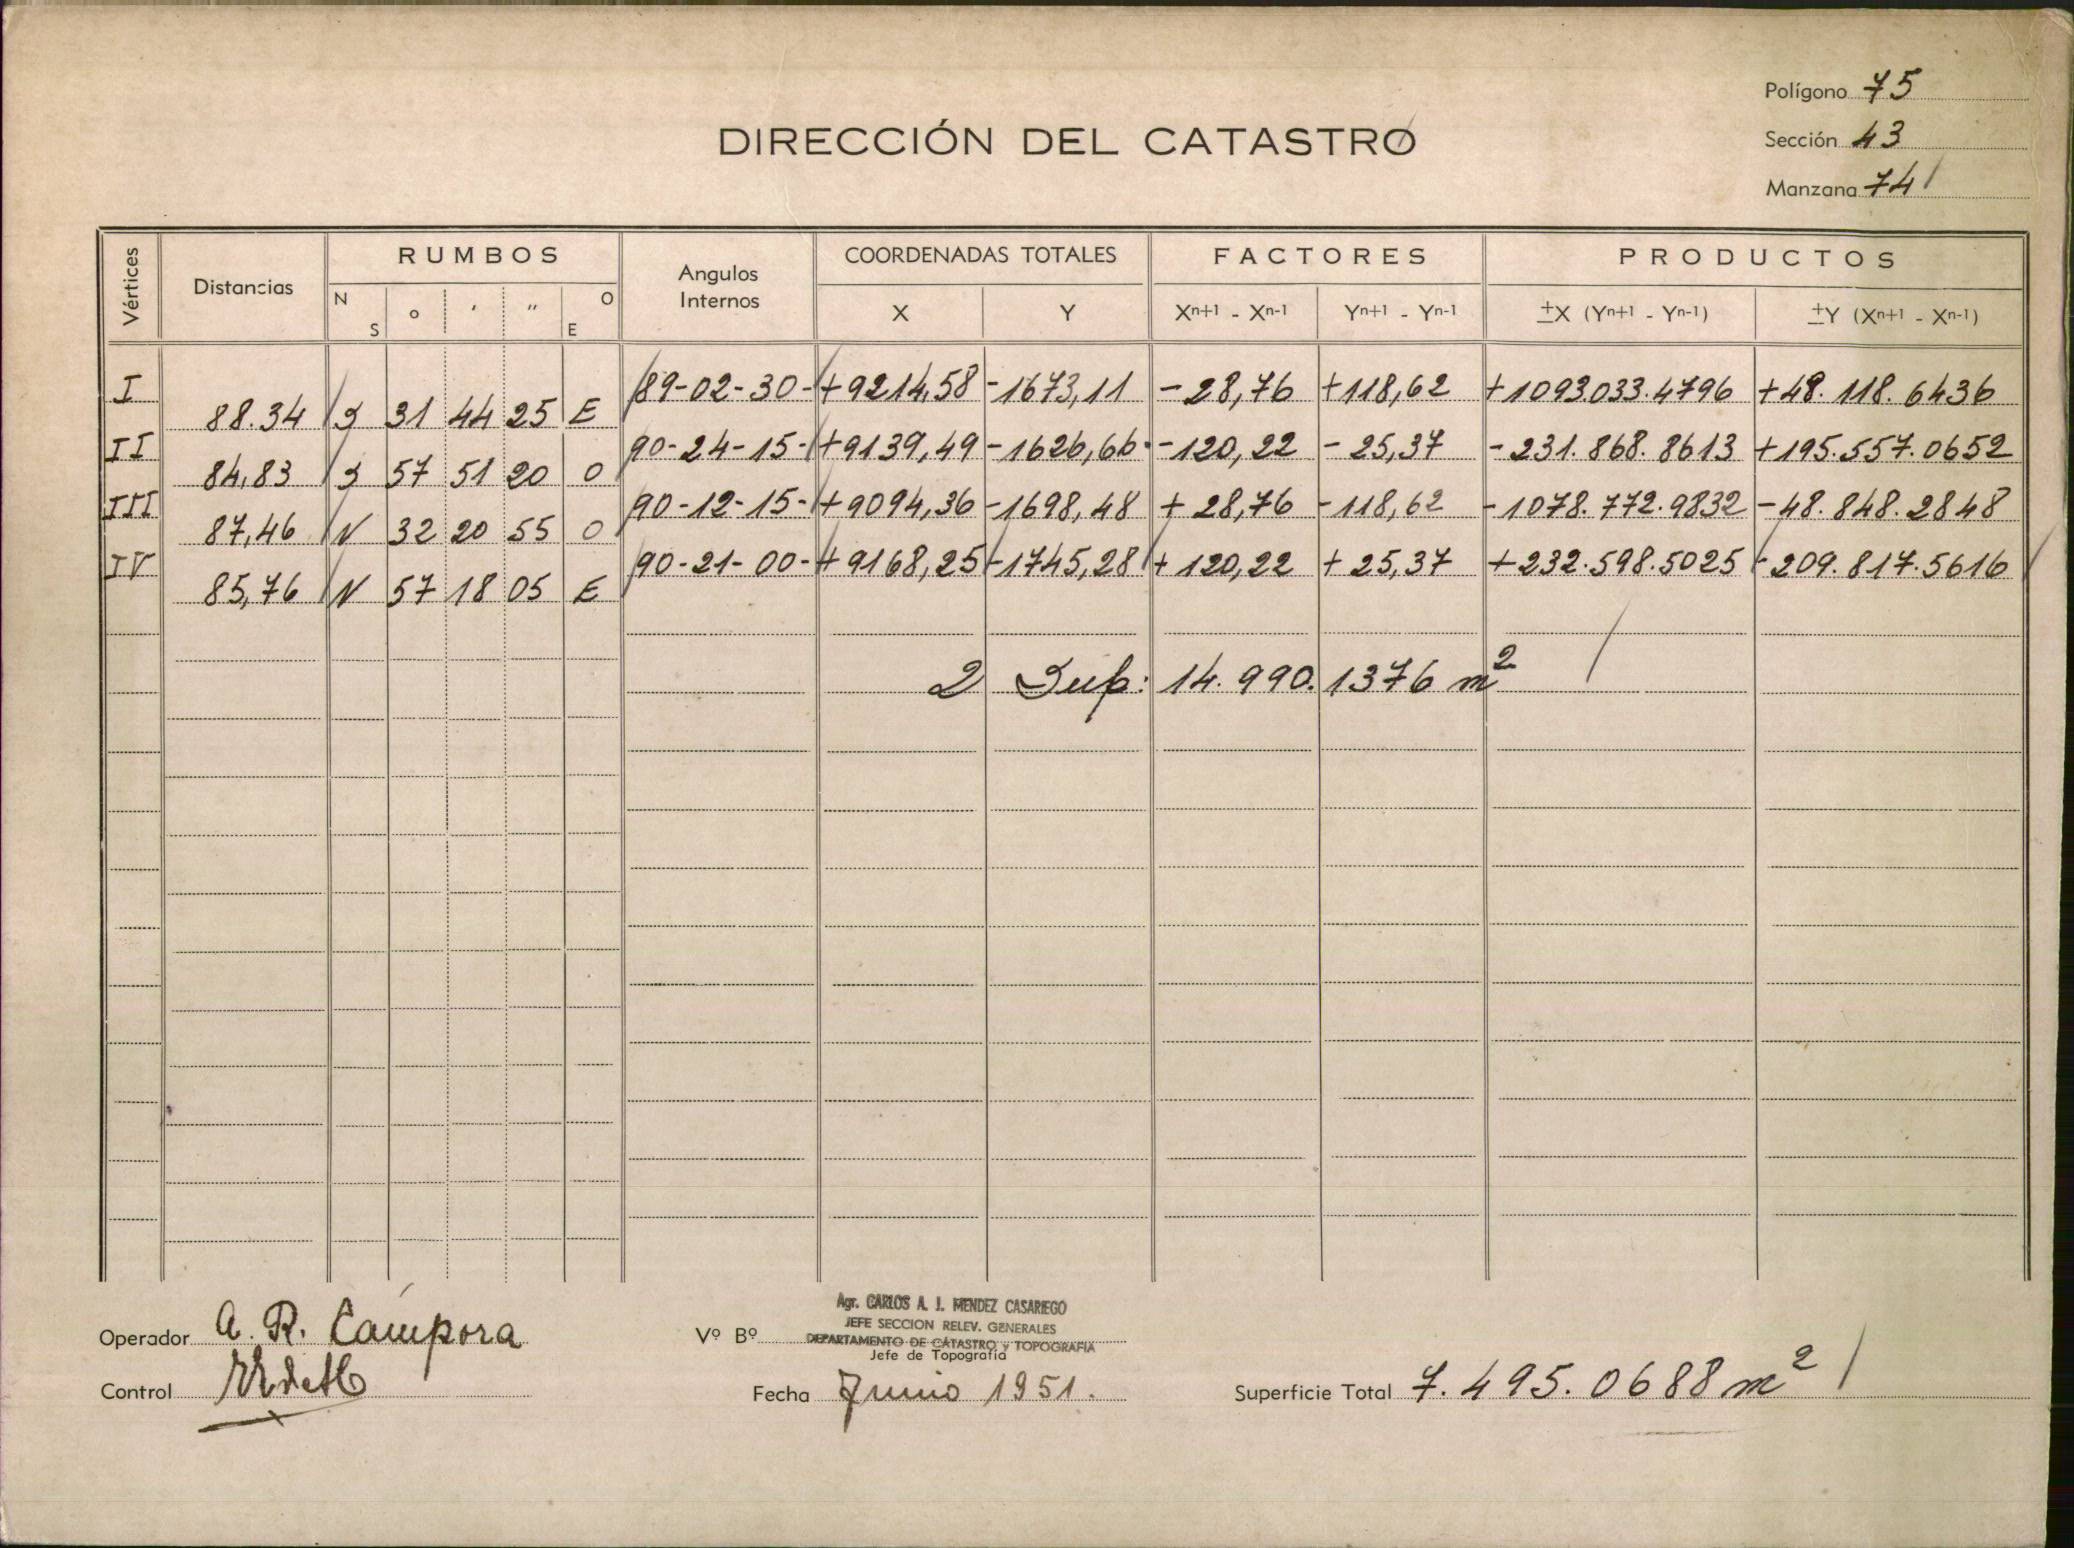 Polígono 75
DIRECCIÓN DEL CATASTRO
Sección 43
Manzana 74
Vértices
Distancias
RUMBOS
N S ° ′ ″ O E
Angulos Internos
COORDENADAS TOTALES
X Y
FACTORES
Xn+1 - Xn-1 Yn+1 - Yn-1
PRODUCTOS
±X (Yn+1 - Yn-1) ±Y (Xn+1 - Xn-1)
I 89-02-30- +9214,58 -1673,11 -28,76 +118,62 +1093.033.4796 +48.118.6436
88.34 S 31 44 25 E
II 90-24-15- +9139,49 -1626,66 -120,22 -25,37 -231.868.8613 +195.557.0652
84,83 S 57 51 20 O
III 90-12-15- +9094,36 -1698,48 +28,76 -118,62 -1078.772.9832 -48.848.2848
87,46 N 32 20 55 O
IV 90-21-00- +9168,25 -1745,28 +120,22 +25,37 +232.598.5025 -209.817.5616
85,76 N 57 18 05 E
2 Sup: 14.990.1376 m²
Operador A. R. Cámpora
Vº Bº
Agr. CARLOS A. J. MENDEZ CASARIEGO
JEFE SECCION RELEV. GENERALES
DEPARTAMENTO DE CATASTRO y TOPOGRAFIA
Jefe de Topografía
Control
Fecha Junio 1951.
Superficie Total 7.495.0688 m²